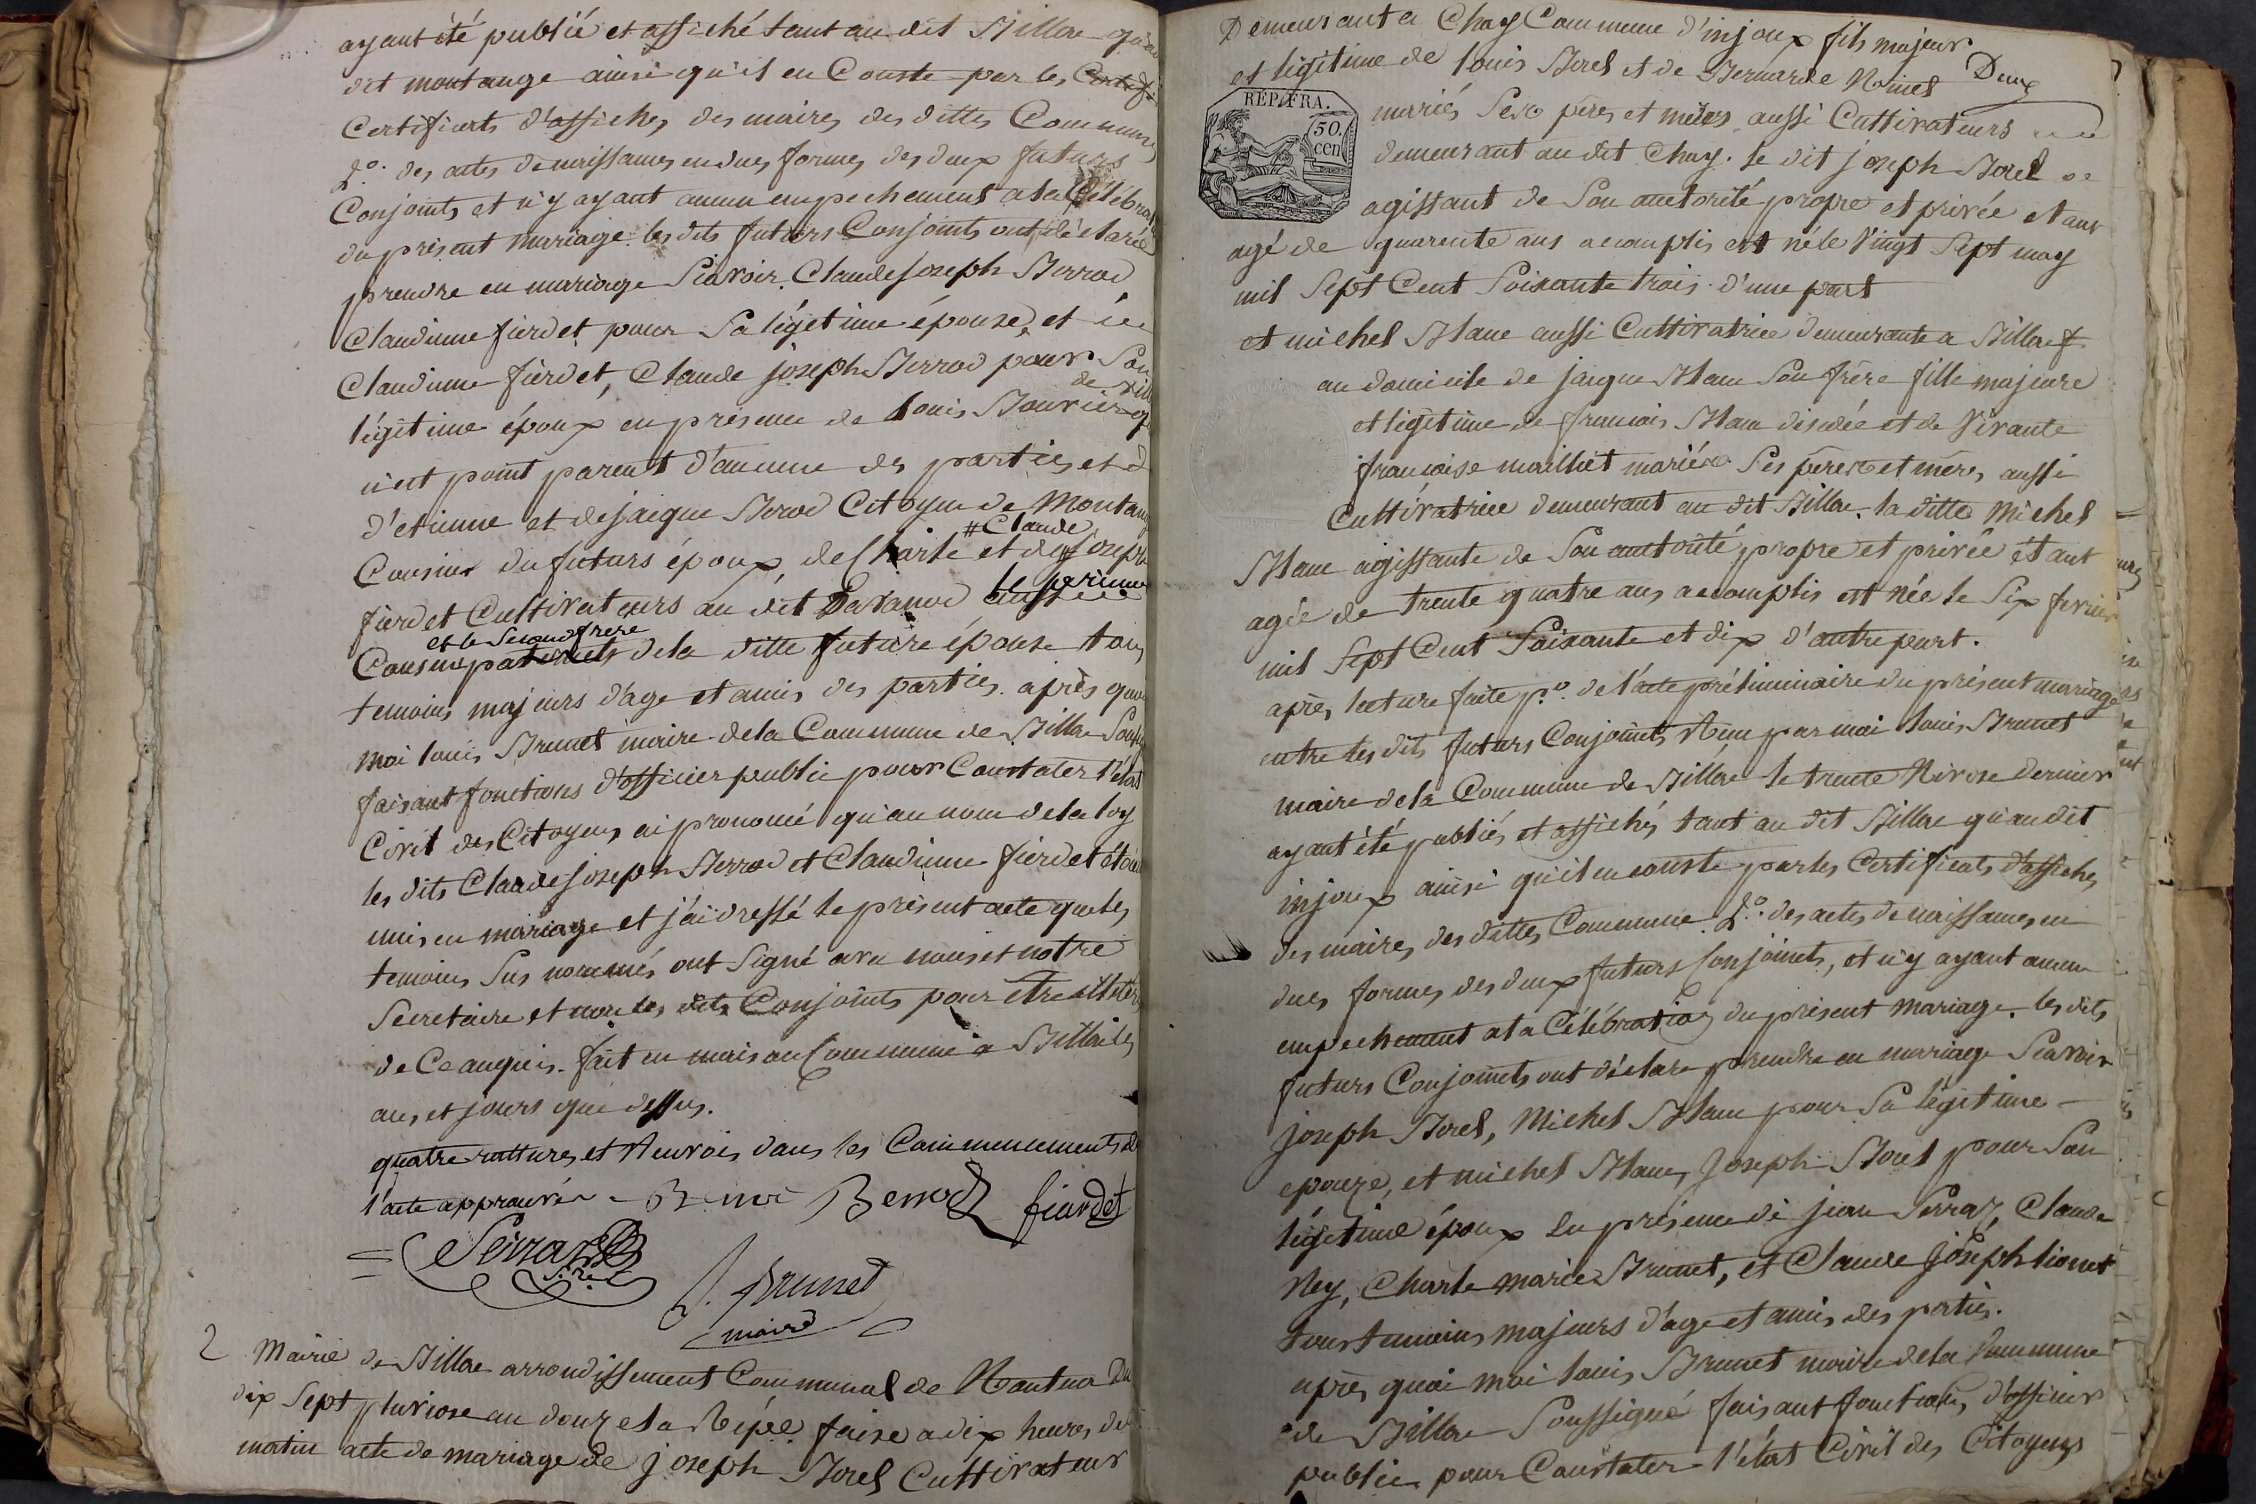 ayant été publié et affiché tant au dit Billiat qu'au
dit montange ainsi qu'il en Conste par les
Certificats d'affiches des maires des dittes Communes
2.o des actes de naissances en dues formes des deux futurs
Conjoints et n'y ayant aucun empechement a la Célébration
du présent mariage. les dits futurs Conjoints ont déclaré
prendre en mariage Scavoir. Claude Joseph Berrod
Claudinne fierdet pour Sa légitime épouse, et
Claudinne fierdet, Claude joseph Berrod pour Son
légitime époux en présence de Louis Bouvier de
n'est point parent d'aucune des parties et d
d'etienne et de jacque Berod Citoyen de Montange
Cousins du futurs époux, de Charle et de # Claude joseph
fierdet Cultivateurs au dit le premier
et le Second frère
Cousin paternels de la ditte future épouse tous
temoins majeurs d'age et amis des parties. après quoi
moi louis Brunet maire de la Commune de Billia Soussigné
faisant fonctions d'officier public pour Constater l'état
Civil des Citoyens ai pronomcé qu'au nom de la loy
les dits Claude Joseph Berrod et Claudinne fierdet étoient
unis en mariage et j'ai dressé le présent acte que les
temoins Sus nommés ont Signé avec nous et notre
Secretaire et non les dits Conjoints pour etre illiterés
de Ce enquis. fait en maison Commune a Billia les
an, et jours que dessus.
quatre rattures et Renvois dans les Commencements de
l'acte approuvés Berrod fierdet
Serraz
S.re
L. Brunet
maire
2 Mairie de Billia arrondissement Communal de Nantua Du
dix Sept pluviose an douze la Répe faise a dix heures du
matin acte de mariage de joseph Borel Cultivateur
Demeurant a Chay Commune d'injoux fils majeur
et légitime de louis Borel et de Bernarde Deux
RÉP. FRA.
50. cen
mariés Ses pères et mères aussi Cultivateurs
demeurant au dit Chay. le dit joseph Borel
agissant de Son auctorité propre et privée etant
agé de quarente ans acomplis est né le Vingt Sept may
mil Sept Cent Soixante trois. d'une part
et michel Blanc aussi Cultivatrice demeurante a Billiat
au domicile de jacque Blanc Son frère fille majeure
et légitime de francois Blanc décédé et de Vivante
francoise mailliet mariés Ses pères et mère, aussi
Cultivatrice demeurant au dit Billia. la ditte Michel
Blanc agissante de Son auctorité propre et privée étant
agée de trente quatre ans acomplis est née le Six fevrier
mil Sept Cent Soixante et dix d'autre part.
après lecture faite p.o de l'acte préliminaire du présent mariage
entre les dits futurs Conjoints Reçu par moi Louis Brunet
maire de la Commune de Billia le trente Nivose dernier
ayant été publiés et affichés tant au dit Billia qu'au dit
injoux ainsi qu'il en conste par les Certificats d'affiches
des maires des dittes Commune. 2.o des actes de naissances en
dues formes des deux futurs Conjoints, et n'y ayant aucun
empechement a la Célébration du présent mariage. les dits
futurs Conjoints ont déclaré prendre en mariage Scavoir
joseph Borel, Michel Blanc pour Sa légitime
epouze, et michel Blanc, Joseph Borel pour Son
légitime époux En présence de jean Serraz, Claude
Ney, Charle marie Brunet, et Claude joseph lionet
tous temoins majeurs d'age et amis des parties.
après quoi moi louis Brunet maire de la Commune
de Billia Soussigné faisant fonctions d'officier
public pour Constater l'état Civil des Citoyens